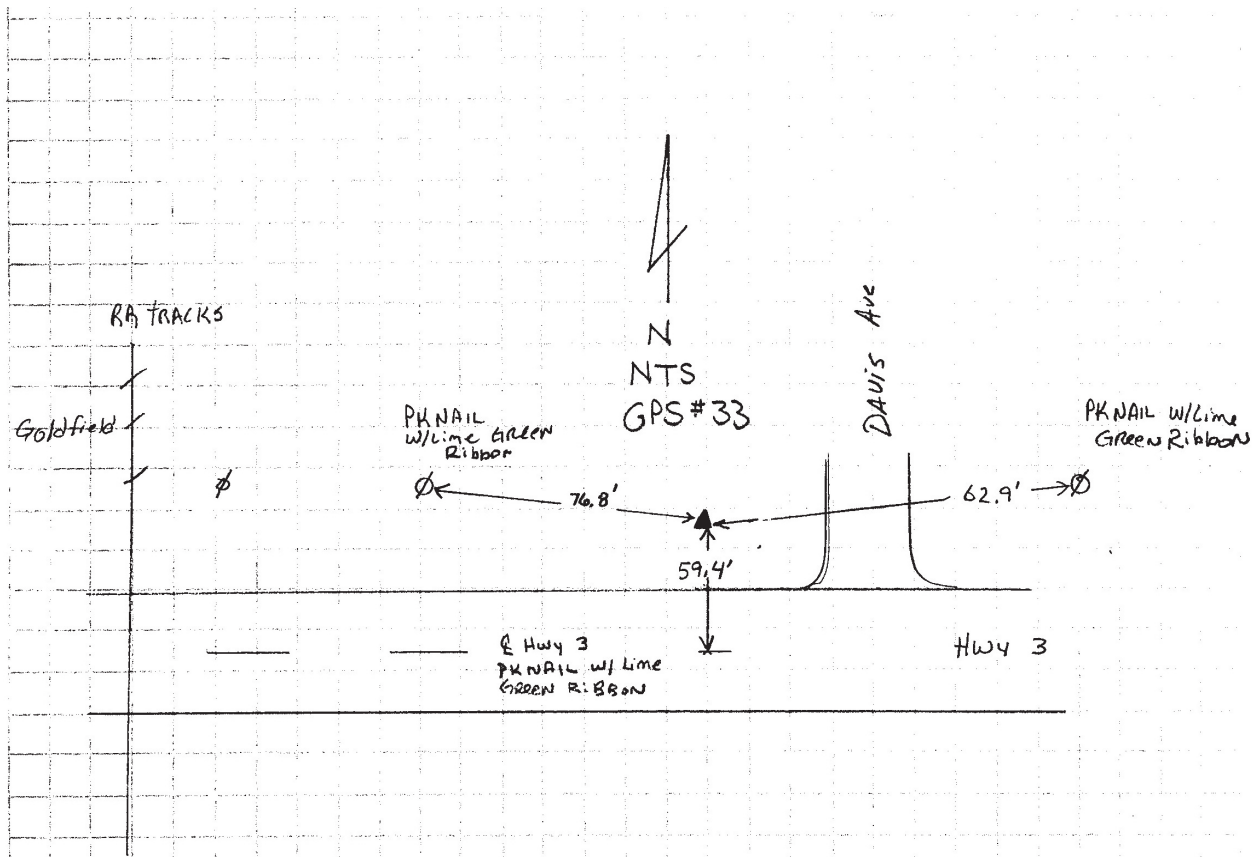 RR TRACKS
Goldfield
N
NTS
GPS #33
DAVIS Ave
PK NAIL
W/Lime GREEN
Ribbon
PK NAIL W/Lime
GREEN Ribbon
76.8'
62.9'
59.4'
℄ Hwy 3
PK NAIL W/ Lime
GREEN RiBBON
Hwy 3